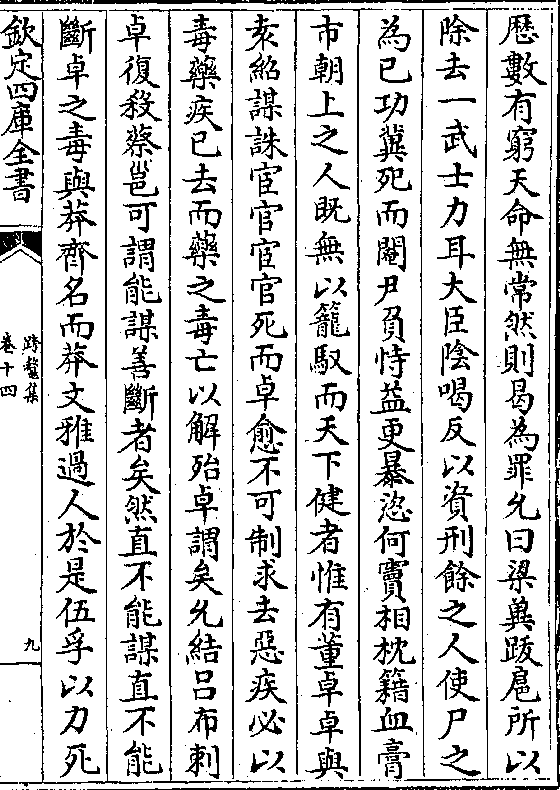 歷數有窮天命無常然則曷為罪允曰梁冀跋扈所以
除去一武士力耳大臣陰喝反以資刑餘之人使尸之
為己功冀死而閹尹負恃益更暴恣何竇相枕籍血膏
市朝上之人既無以籠馭而天下健者惟有董卓卓與
袁紹謀誅宦官宦官死而卓愈不可制求去惡疾必以
毒藥疾已去而藥之毒亡以解殆卓謂矣允結呂布刺
卓復殺蔡邕可謂能謀善斷者矣然直不能謀直不能
斷卓之毒與莽齊名而莽文雅過人於是伍孚以力死
欽定四庫全書
跨鼇集
卷十四
九